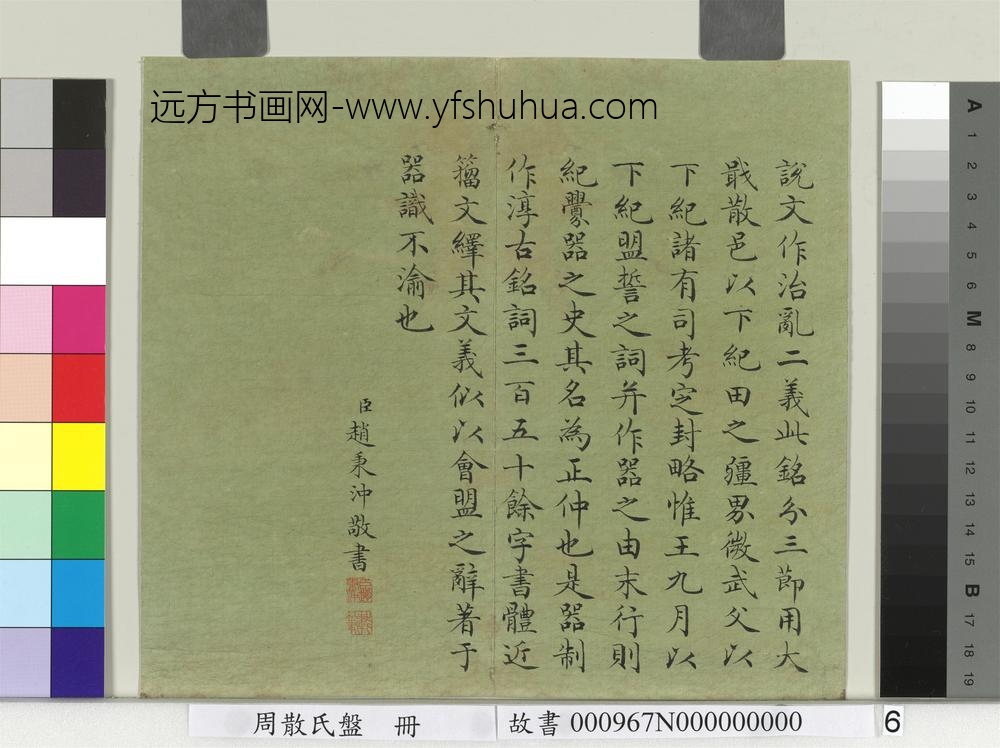 远方书画网-www.yfshuhua.com
說文作治亂二義此銘分三節用大
戢散邑以下紀田之疆界微武父以
下紀諸有司考定封略惟王九月以
下紀盟誓之詞并作器之由末行則
紀釁器之史其名為正仲也是器制
作淳古銘詞三百五十餘字書體近
籀文繹其文義似以會盟之辭著于
器識不渝也
臣趙秉沖敬書
周散氏盤 冊
故書 000967N000000000
6
A 1 2 3 4 5 6 M 8 9 10 11 12 13 14 15 B 17 18 19